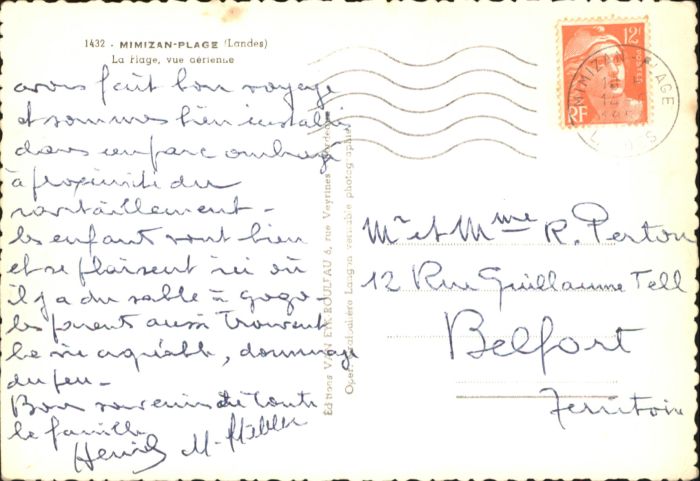 1432 - MIMIZAN-PLAGE (Landes)
La Plage, vue aérienne
avons fait bon voyage
et sommes bien installés
dans un parc ombragé
à proximité du
ravitaillement -
les enfants vont bien
et se plaisent ici où
il y a du sable à gogo -
les parents aussi trouvent
la vie agréable, dommage
du feu -
Bons souvenirs de toute
la famille
Henri M.
Editions VAN EYK-ROULEAU 6, rue Veyrines
Opér. Langon véritable photographie
12F
RF
MIMIZAN PLAGE
LANDES
Mr et Mme R. Perton
12 Rue Guillaume Tell
Belfort
Territoire